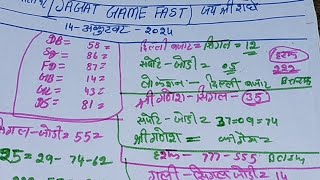 [JAGAT GAME FAST] जय श्री राधे
14-अक्टूबर - 2024
DB= 58 =
SG= 86 =
FD= 87 =
GB= 14 =
GL= 43 =
DS= 81 =
दिल्ली बाजार = सिंगल = 12
सपोर्ट - जोड़ी = 05
दिल्ली बाजार
श्री गणेश - सिंगल - 35
सपोर्ट - जोड़ी = 37=09=74
श्री गणेश =
हरूफ
222
सिंगल - जोड़ी = 552
25=29-74-62
हरूफ - 777-555
गली - सिंगल जोड़ी = 14